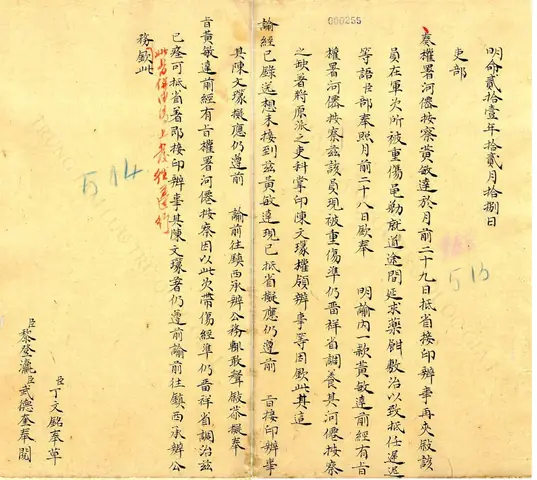 000255
明命貳拾壹年拾貳月拾捌日
吏部
奏權署河僊按察黃敏達於月前二十九日抵省接印辦事再夾敘該
員在軍次所被重傷黽勉就道途間延求藥餌敷治以致抵任遲遲
等語臣部奉照月前二十八日欽奉 明諭內一款黃敏達前經有旨
權署河僊按察茲該員現被重傷準仍畱祥省調養其河僊按察
之缺著將原派之吏科掌印陳文權領辦事等因欽此其這
諭經已錄送想未接到茲黃敏達現已抵省擬應仍遵前 旨接印辦事
其陳文擬應仍遵前 諭前往鎮西承辦公務輒敢聲敘恭擬奉
旨黃敏達前經有旨權署河僊按察因以此次帶傷經準仍畱祥省調治茲
已痊可抵省著卽接印辦事其陳文著仍遵前諭前往鎮西承辦公
務欽此
臣丁文銘奉草
臣黎登瀛臣武德奎奉閱
514
515